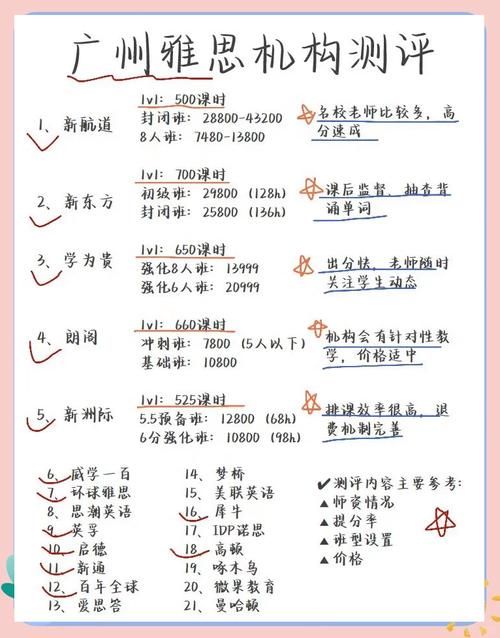 广州雅思机构测评
1、新航道
1v1: 500课时
封闭班: 28800-43200
8人班: 7480-13800
名校老师比较多, 高
分速成
2、新东方
1v1: 700课时
初级班: 29800 (128h)
封闭班: 25800 (136h)
课后监督、抽查背
诵单词
3、学为贵
1v1: 650课时
强化8人班: 13999
强化6人班: 20999
出分快, 老师随时
关注学生动态
4、朗阁
1v1: 660课时
冲刺班: 7800 (5人以下)
基础班: 10800
机构会有针对性教
学, 价格适中
5、新洲际
1v1: 525课时
5.5预备班: 12800 (68h)
6分强化班: 10800 (98h)
排课效率很高, 退
费机制完善
6、威学一百
7、环球雅思
8、思潮英语
9、英孚
10、启德
11、新通
12、百年全球
13、爱思答
14、梦桥
15、美联英语
16、犀牛
17、IDP诺思
18、高顿
19、啄木鸟
20、微果教育
21、曼哈顿
✔测评内容主要参考:
▲师资情况
▲提分率
▲班型设置
▲价格